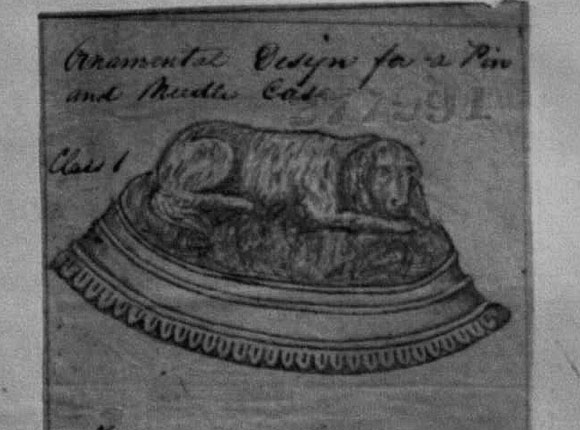 Ornamental Design for a Pin
and Needle Case
377991
Class 1